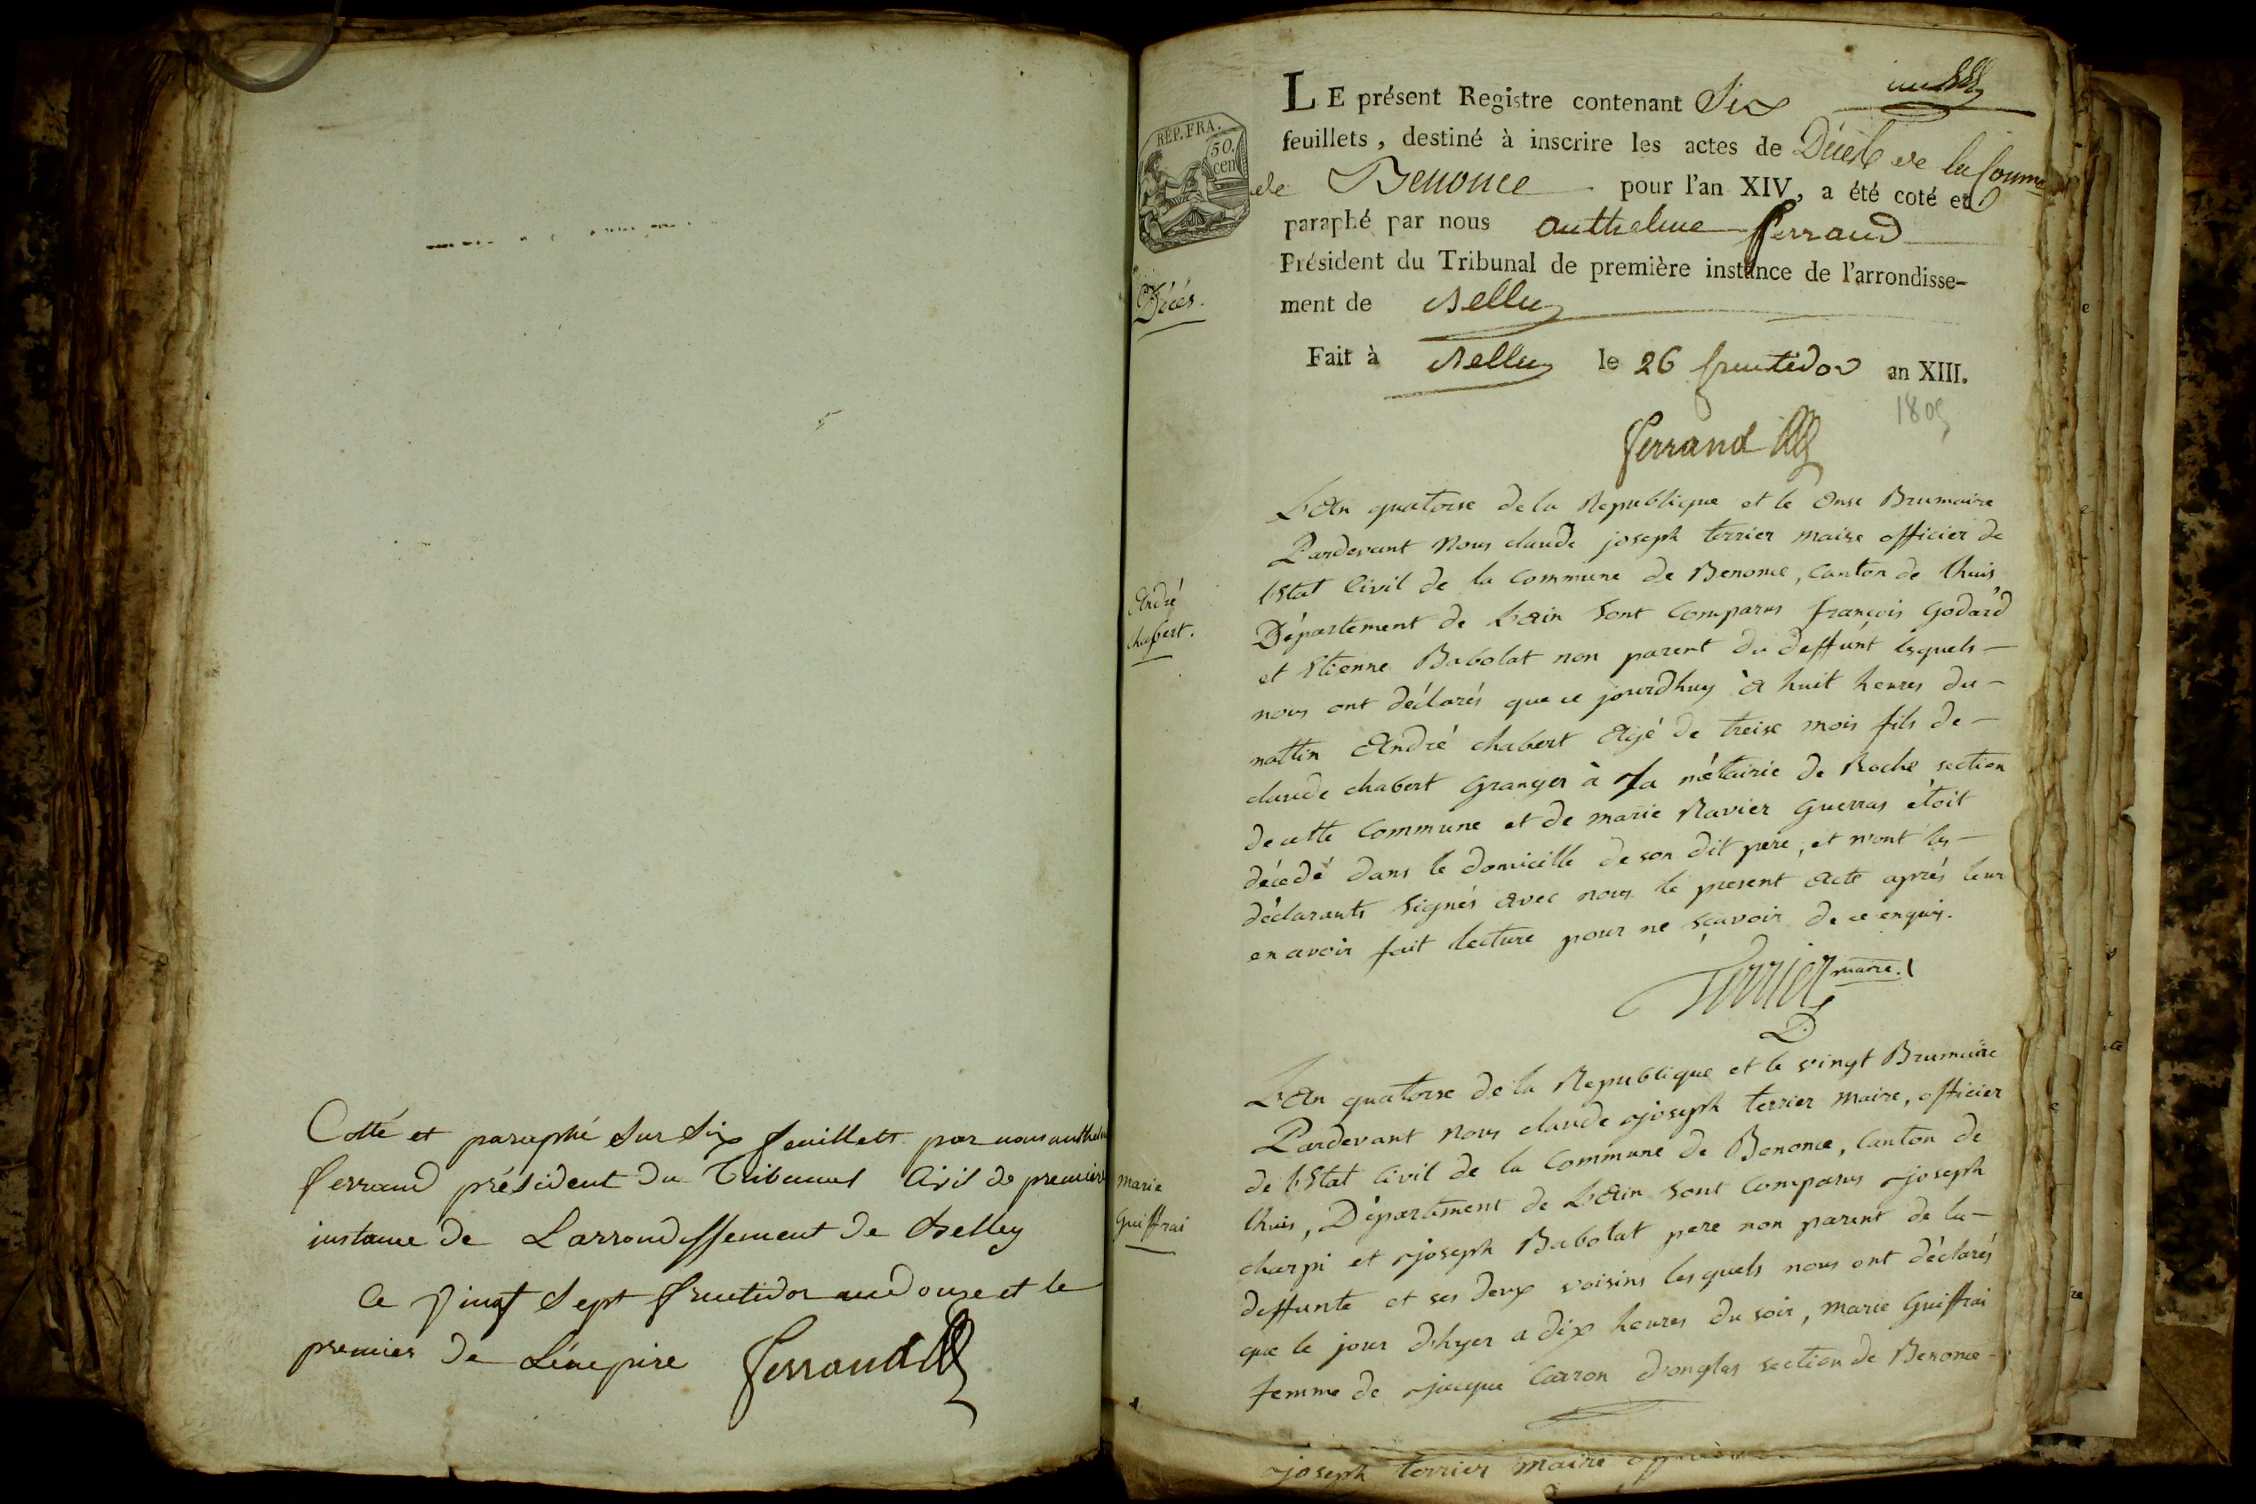 Cotté et paraphé sur six feuillets par nous anthelme
ferrand président du Tribunal Civil de premiere
instance de Larrondissement de Belley
ce vingt sept fructidor an douze et le
premier de Lempire ferrand
REP. FRA.
50.
cen
Décès.
André
chabert.
marie
Guiffrai
LE présent Registre contenant Six
feuillets, destiné à inscrire les actes de Décès de la Commune
de Benonce pour l'an XIV, a été coté et
paraphé par nous anthelme ferrand
Président du Tribunal de première instance de l'arrondisse-
ment de Belley
Fait à Belley le 26 fructidor an XIII.
1805
ferrand
L'An quatorse de la Republique et le Onse Brumaire
Pardevant Nous claude joseph terrier maire officier de
l'Etat Civil de la Commune de Benonce, Canton de lhuis
Département de L'Ain sont Comparus françois Godard
et Etienne Babolat non parent du deffunt lesquels
nous ont déclarés que ce jourdhuy à huit heures du
mattin André chabert Agé de treise mois fils de
claude chabert Granger à La métairie de Roche section
de cette Commune et de marie Ravier Guerras étoit
décédé dans le domicille de son dit pere, et n'ont les
déclarants signés avec nous le present Acte aprés leur
en avoir fait lecture pour ne sçavoir de ce enquis.
Terrier maire.
L'An quatorse de la Republique et le vingt Brumaire
Pardevant Nous claude joseph terrier Maire, officier
de l'Etat Civil de la Commune de Benonce, Canton de
lhuis, Département de L'Ain sont Comparus joseph
charpi et joseph Babolat pere non parent de la
deffunte et ses deux voisins lesquels nous ont déclarés
que le jour d'hyer a dix heures du soir, marie Guiffrai
femme de jacque Carron d'onglas section de Benonce
joseph terrier maire